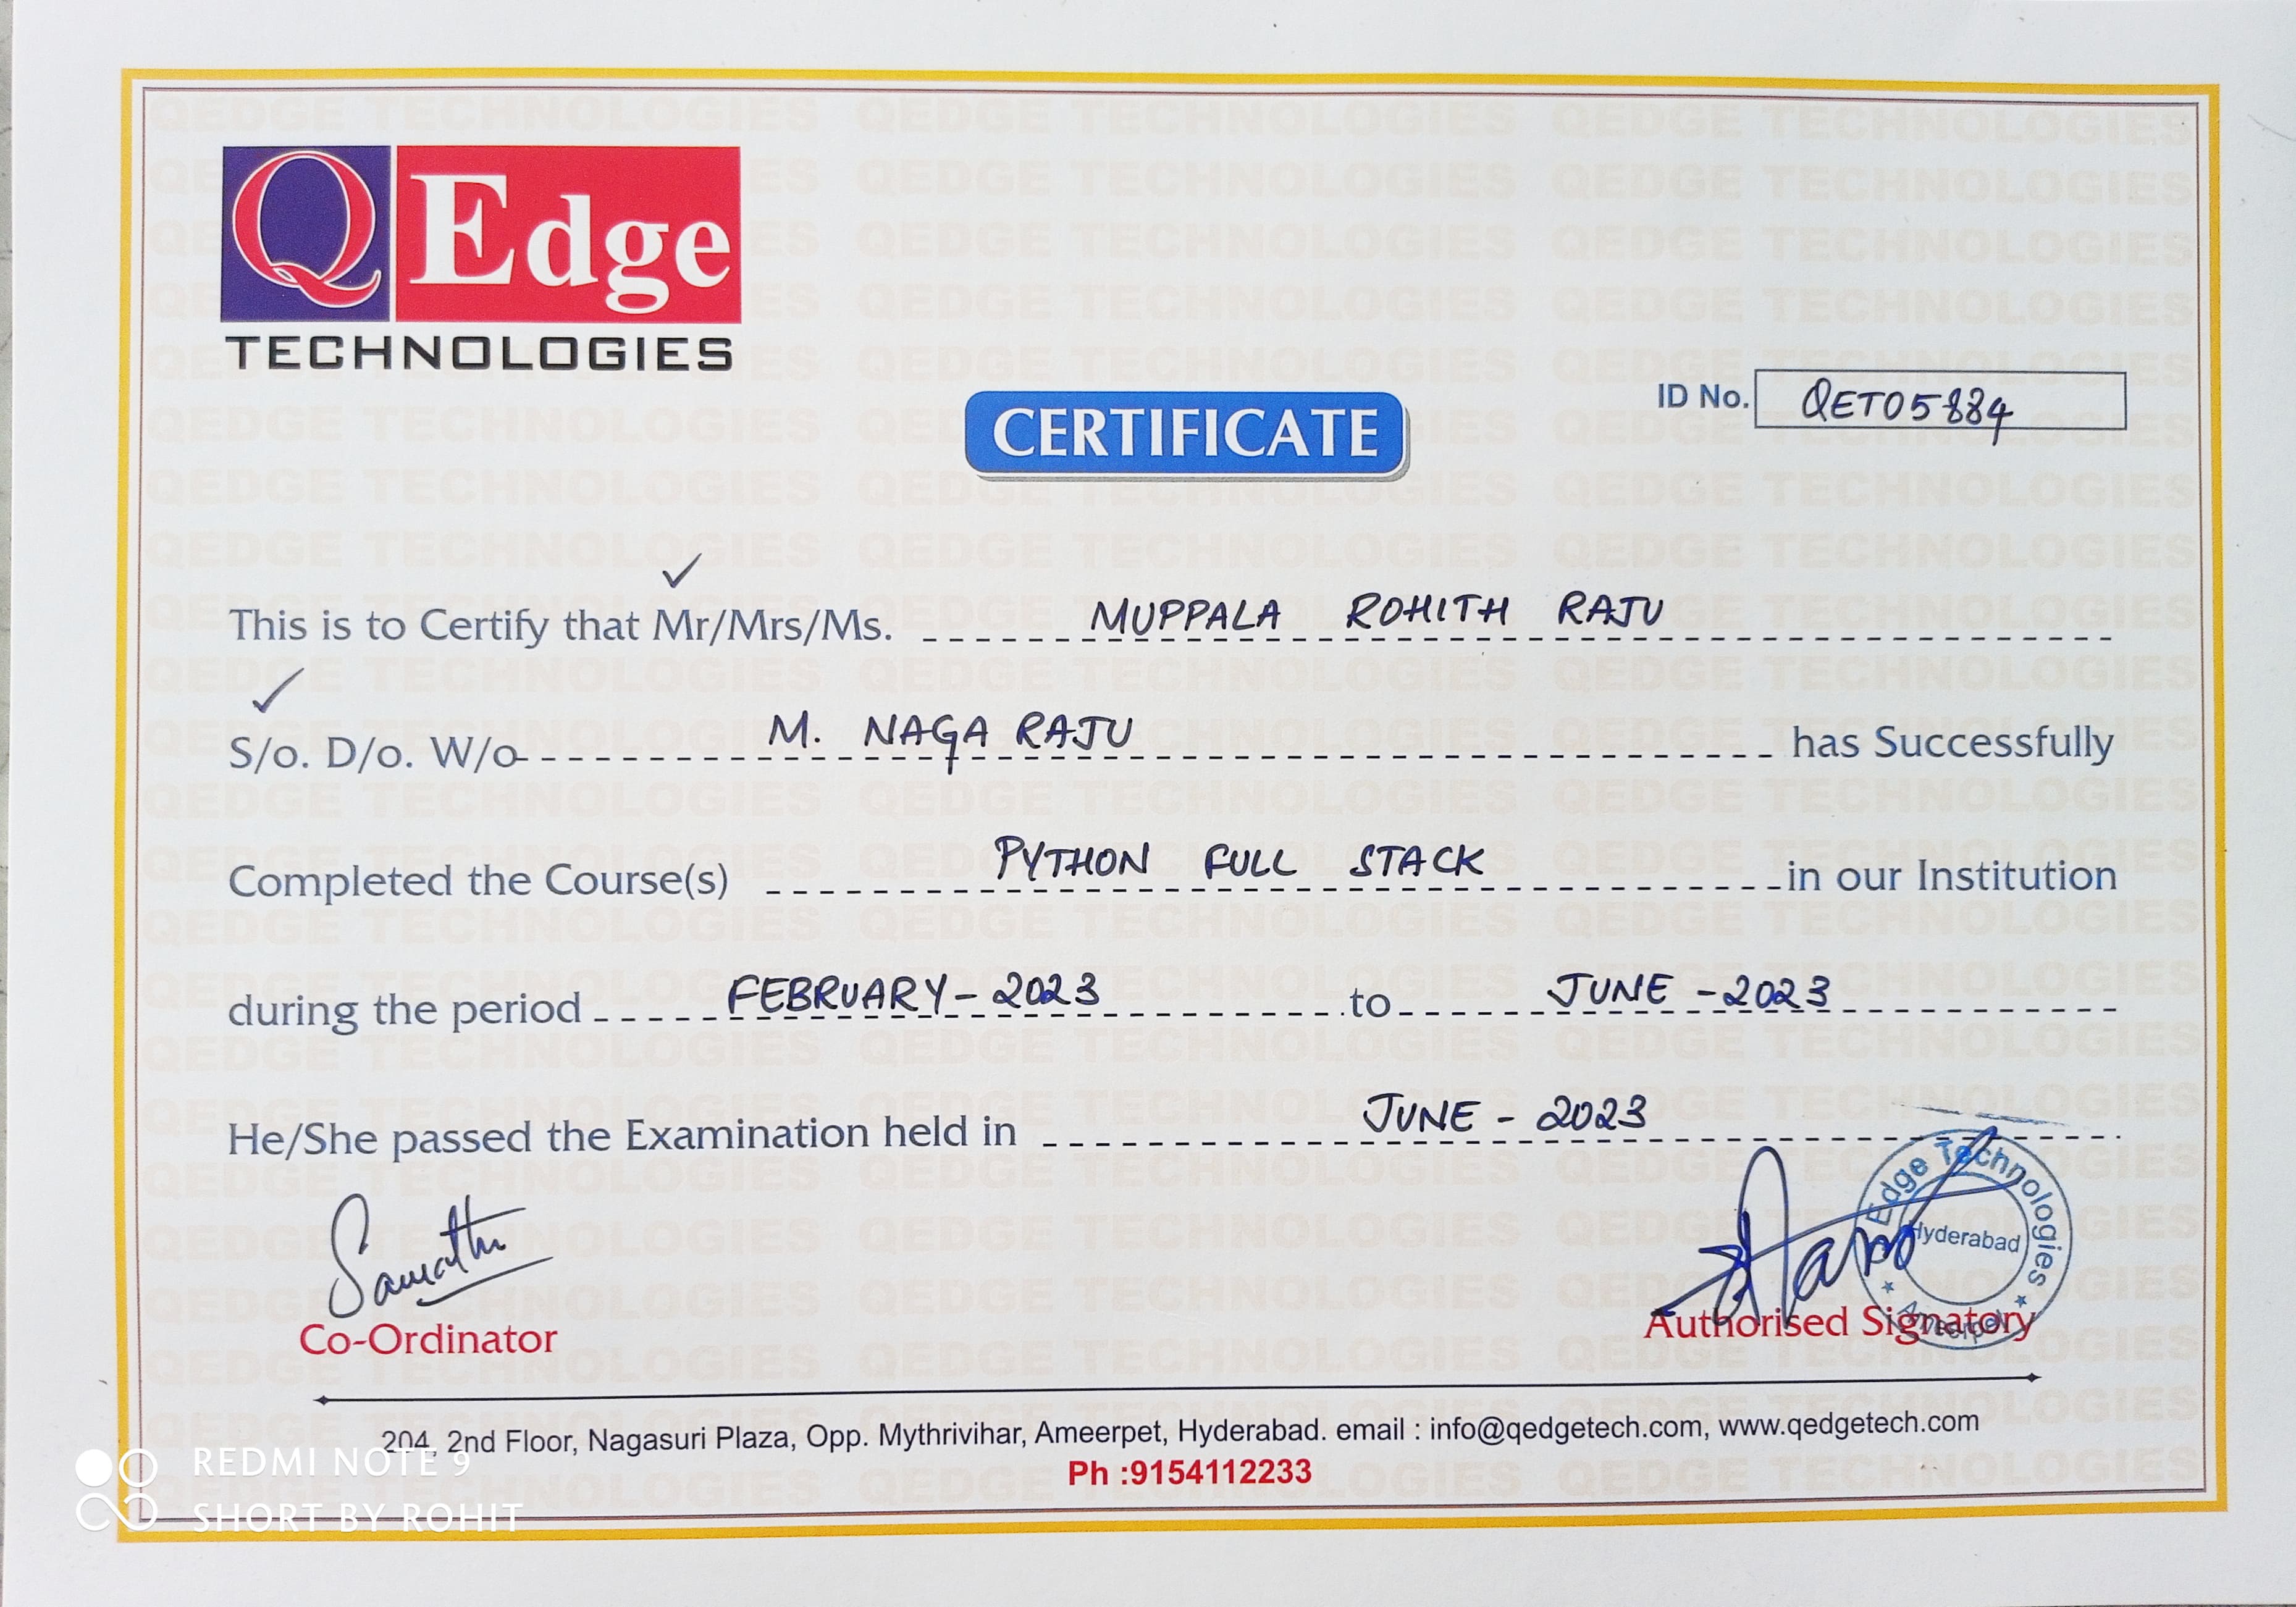 Q Edge
TECHNOLOGIES
ID No. QET05884
CERTIFICATE
This is to Certify that Mr/Mrs/Ms. MUPPALA ROHITH RAJU
S/o. D/o. W/o M. NAGA RAJU has Successfully
Completed the Course(s) PYTHON FULL STACK in our Institution
during the period FEBRUARY - 2023 to JUNE - 2023
He/She passed the Examination held in JUNE - 2023
Edge Technologies
Hyderabad
Ameerpet
Co-Ordinator
Authorised Signatory
204, 2nd Floor, Nagasuri Plaza, Opp. Mythrivihar, Ameerpet, Hyderabad. email : info@qedgetech.com, www.qedgetech.com
Ph :9154112233
REDMI NOTE 9
SHORT BY ROHIT